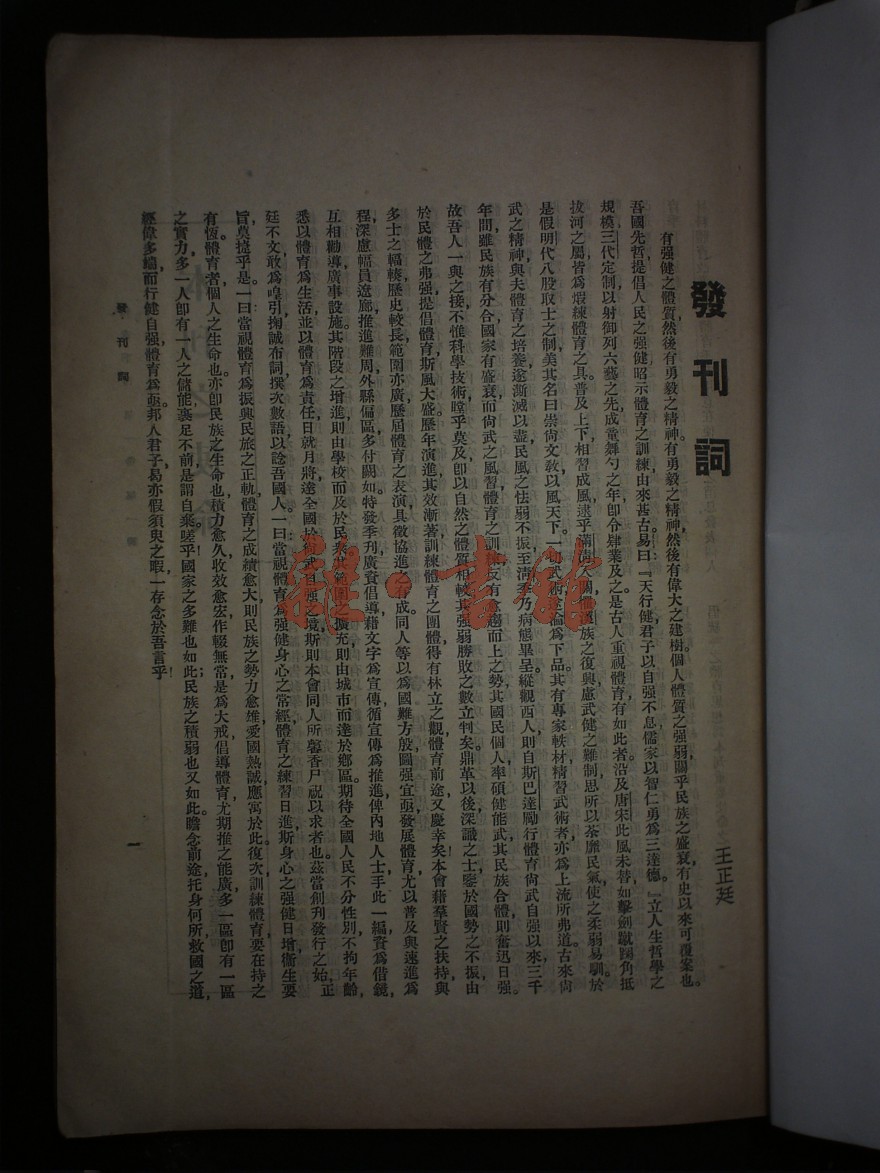 發刊詞
王正廷
有强健之體質，然後有勇毅之精神。有勇毅之精神，然後有偉大之建樹。個人體質之强弱，關乎民族之盛衰，有史以來可覆案也。
吾國先哲，提倡人民之强健，昭示體育之訓練，由來甚古。易曰：『天行健君子以自强不息，儒家以智仁勇爲三達德。』立人生哲學之
規模。三代定制，以射御列六藝之先，成童舞勺之年，卽令肄業及之。是古人重視體育，有如此者。沿及唐宋，此風未替，如擊劍蹴踘角抵
拔河之屬，皆爲煆練體育之具，普及上下，相習成風。逮乎滿淸入關，慮民族之復興，慮武健之難制，思所以荼靡民氣，使之柔弱易馴。於
是假明代八股取士之制，美其名曰崇尙文敎，以風天下。一切武術，遂淪爲下品。其有專家軼材，精習武術者，亦爲上流所弗道。古來尙
武之精神，與夫體育之培養，遂漸滅以盡，民風之怯弱不振，至淸季乃病態畢呈。縱觀西人，則自斯巴達勵行體育，尙武自强以來，三千
年間，雖民族有分合，國家有盛衰，而尙武之風習，體育之訓練，反有愈趨而上之勢。其國民個人，率碩健能武，其民族合體，則奮迅日强。
故吾人一與之接，不惟科學技術，瞠乎莫及，卽以自然之體質相較，其强弱勝敗之數立判矣。鼎革以後，深識之士，鑒於國勢之不振，由
於民體之弗强，提倡體育，斯風大盛。歷年演進，其效漸著，訓練體育之團體，得有林立之觀，體育前途，又慶幸矣。本會藉羣賢之扶持，與
多士之輻輳，歷史較長，範圍亦廣，歷屆體育之表演，具徵協進之有成。同人等以爲國難方殷，圖强宜亟，發展體育，尤以普及與速進爲
程，深慮幅員遼廓，推進難周，外縣偏區，多付闕如，特發季刊，廣資倡導，藉文字爲宣傳，循宣傳爲推進，俾內地人士，手此一編，資爲借鏡，
互相勸導，廣事設施。其階段之增進，則由學校而及於民衆，其範圍之擴充，則由城市而達於鄉區。期待全國人民，不分性別，不拘年齡，
悉以體育爲生活，並以體育爲責任，日就月將，達全國於衛武自强之境，斯則本會同人所馨香尸祝以求者也。茲當創刋發行之始，正
廷不文，敢爲喤引，掬誠布詞，撰次數語，以諗吾國人。一曰當視體育爲强健身心之常經，體育之練習日進，斯身心之强健日增，衞生要
旨，莫捷乎是。一曰當視體育爲振興民族之正軌，體育之成績愈大，則民族之勢力愈雄，愛國熱誠，應寓於此。復次訓練體育，要在持之
有恆。體育者，個人之生命也，亦卽民族之生命也，積力愈久，收效愈宏，作輟無常，是爲大戒。倡導體育，尤期推之能廣，多一區卽有一區
之實力，多一人卽有一人之儲能，裹足不前，是謂自棄。嗟乎！國家之多難也如此；民族之積弱也又如此。瞻念前途，托身何所，救國之道，
經偉多端，而行健自强，體育爲亟，邦人君子，曷亦假須臾之暇，一存念於吾言乎！
發刊詞
一
雜·書館